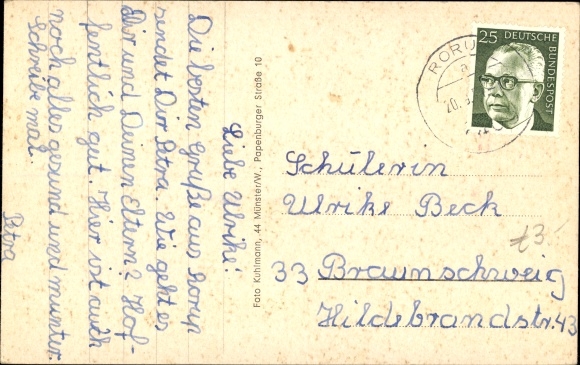 Liebe Ulrike!
Die besten Grüße aus Rorup
sendet Dir Petra. Wie geht es
Dir und Deinen Eltern? Hof-
fentlich gut. Hier ist auch
noch alles gesund und munter.
Schreibe mal.
Petra
Foto Kuhlmann, 44 Münster/W., Papenburger Straße 10
25 DEUTSCHE
BUNDESPOST
RORUP
a
20.
Schülerin
Ulrike Beck
33 Braunschweig
Hildebrandstr. 43